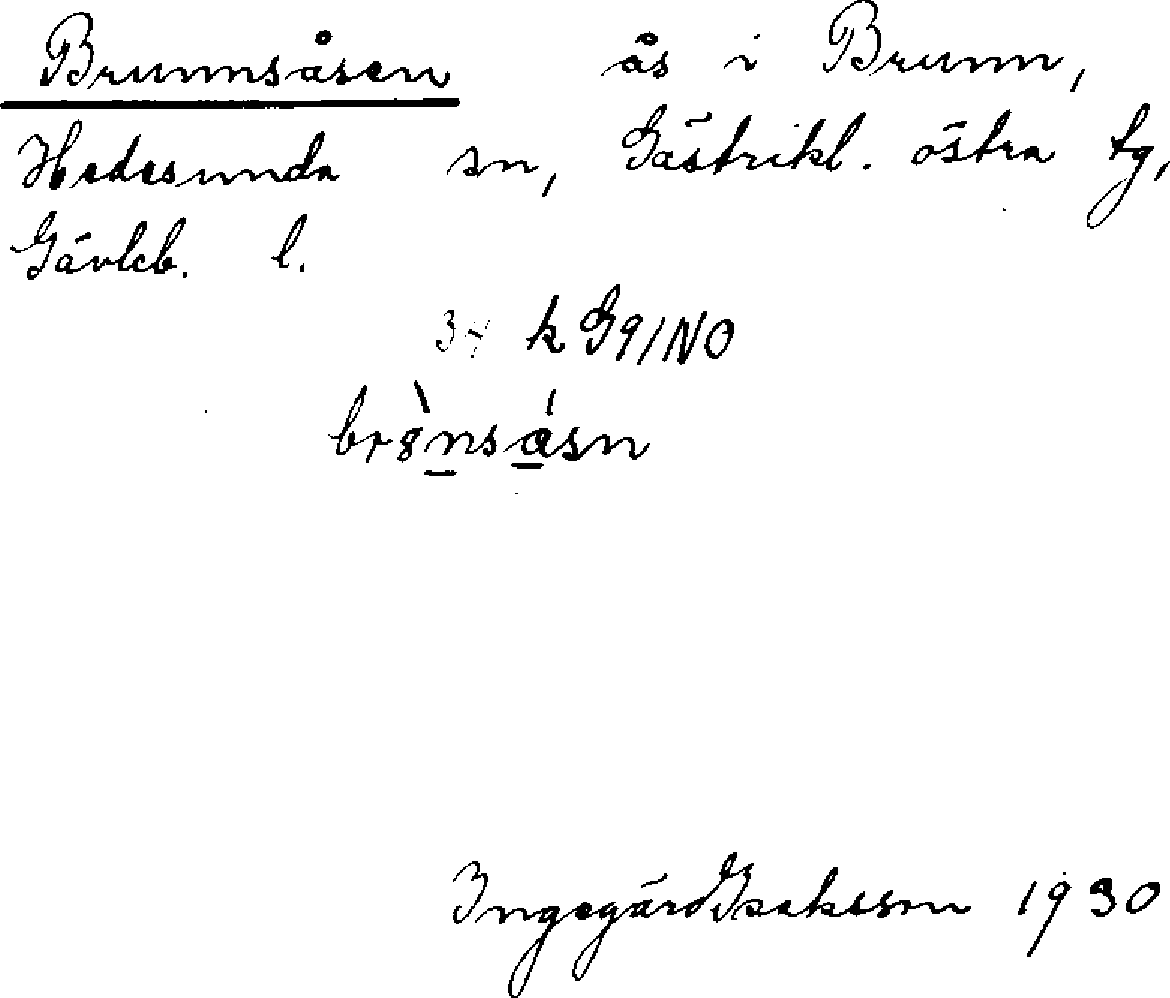 Brunnsåsen ås i Brunn,
Hedesunda sn, Gästrikl. östra tg,
Gävleb. l.
k G9/NO
brònsásn
Ingegärd Isaksson 1930